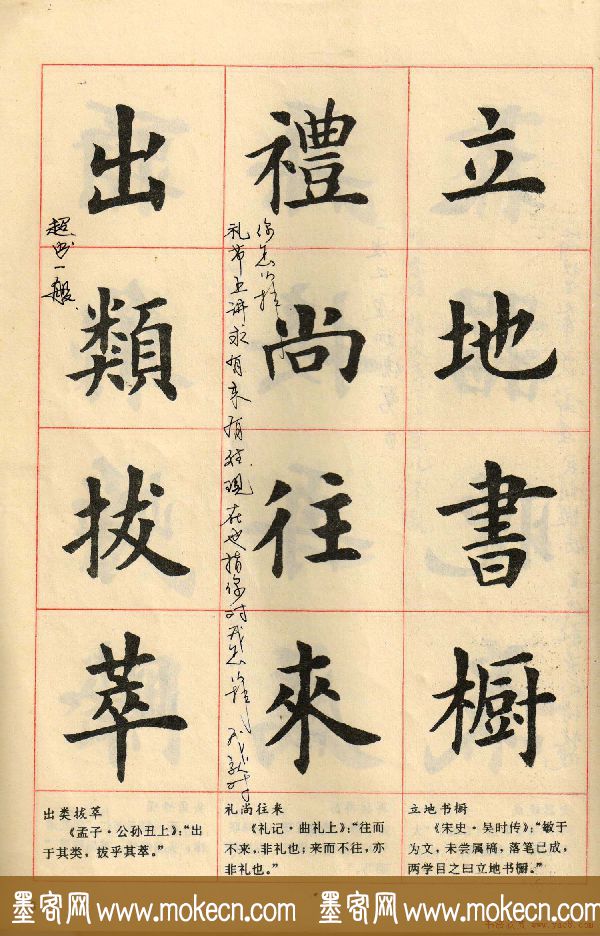 立地書橱
禮尚往來
出類拔萃
礼节上讲求有来有往现在也指你对我怎样 我就对
你怎么样
超出一般
立地书橱
《宋史·吴时传》：“敏于
为文，未尝属稿，落笔已成，
两学目之曰立地书橱。”
礼尚往来
《礼记·曲礼上》：“往而
不来，非礼也；来而不往，亦
非礼也。”
出类拔萃
《孟子·公孙丑上》：“出
于其类，拔乎其萃。”
墨客网 www.mokecn.com 墨客网 www.mokecn.com